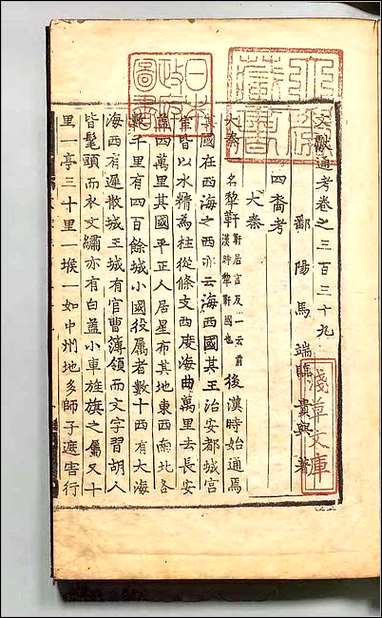 文獻通考卷之三百三十九
鄱陽馬端臨貴與著
四裔考
大秦
大秦名犂靬靬居言反一云前漢時犂靬國也後漢時始通焉
其國在西海之西亦云海西國其王治安都城宮
室皆以水精為柱從條支西度海曲萬里去長安
蓋四萬里其國平正人居星布其地東西南北各
數千里有四百餘城小國役屬者數十西有大海
海西有遲散城王城有官曹簿領而文字習胡人
皆髦頭而衣文繡亦有白蓋小車旌旗之屬又十
里一亭三十里一堠一如中州地多師子遮害行
林氏藏書
日本政府圖書
淺草文庫